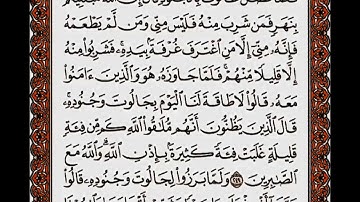 بِنَهَرٍ فَمَن شَرِبَ مِنْهُ فَلَيْسَ مِنِّى وَمَن لَّمْ يَطْعَمْهُ
فَإِنَّهُۥ مِنِّىٓ إِلَّا مَنِ ٱغْتَرَفَ غُرْفَةًۢ بِيَدِهِۦۚ فَشَرِبُوا۟ مِنْهُ
إِلَّا قَلِيلًا مِّنْهُمْۚ فَلَمَّا جَاوَزَهُۥ هُوَ وَٱلَّذِينَ ءَامَنُوا۟
مَعَهُۥ قَالُوا۟ لَا طَاقَةَ لَنَا ٱلْيَوْمَ بِجَالُوتَ وَجُنُودِهِۦۚ
قَالَ ٱلَّذِينَ يَظُنُّونَ أَنَّهُم مُّلَٰقُوا۟ ٱللَّهِ كَم مِّن فِئَةٍ
قَلِيلَةٍ غَلَبَتْ فِئَةً كَثِيرَةًۢ بِإِذْنِ ٱللَّهِۗ وَٱللَّهُ مَعَ
ٱلصَّٰبِرِينَ ٢٤٩ وَلَمَّا بَرَزُوا۟ لِجَالُوتَ وَجُنُودِهِۦ قَالُوا۟